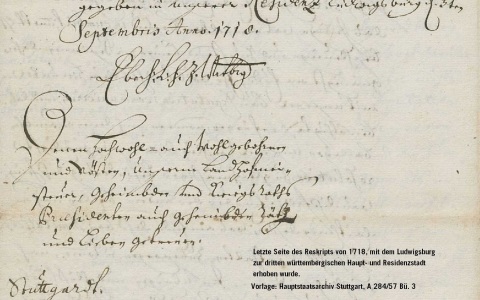 gegeben in unserer Residenz Ludwigsburg den
Septembris Anno. 1718.
Denen Hochwohl= auch Wohlgebohrnen
und Vösten, unserm Landhofmei=
ster, Geheimbden und Kriegs Raths
Praesidenten auch geheimbden Räth
und Lieben getreuen.
Stuttgardt.
Letzte Seite des Reskripts von 1718, mit dem Ludwigsburg
zur dritten württembergischen Haupt- und Residenzstadt
erhoben wurde.
Vorlage: Hauptstaatsarchiv Stuttgart, A 284/57 Bü. 3